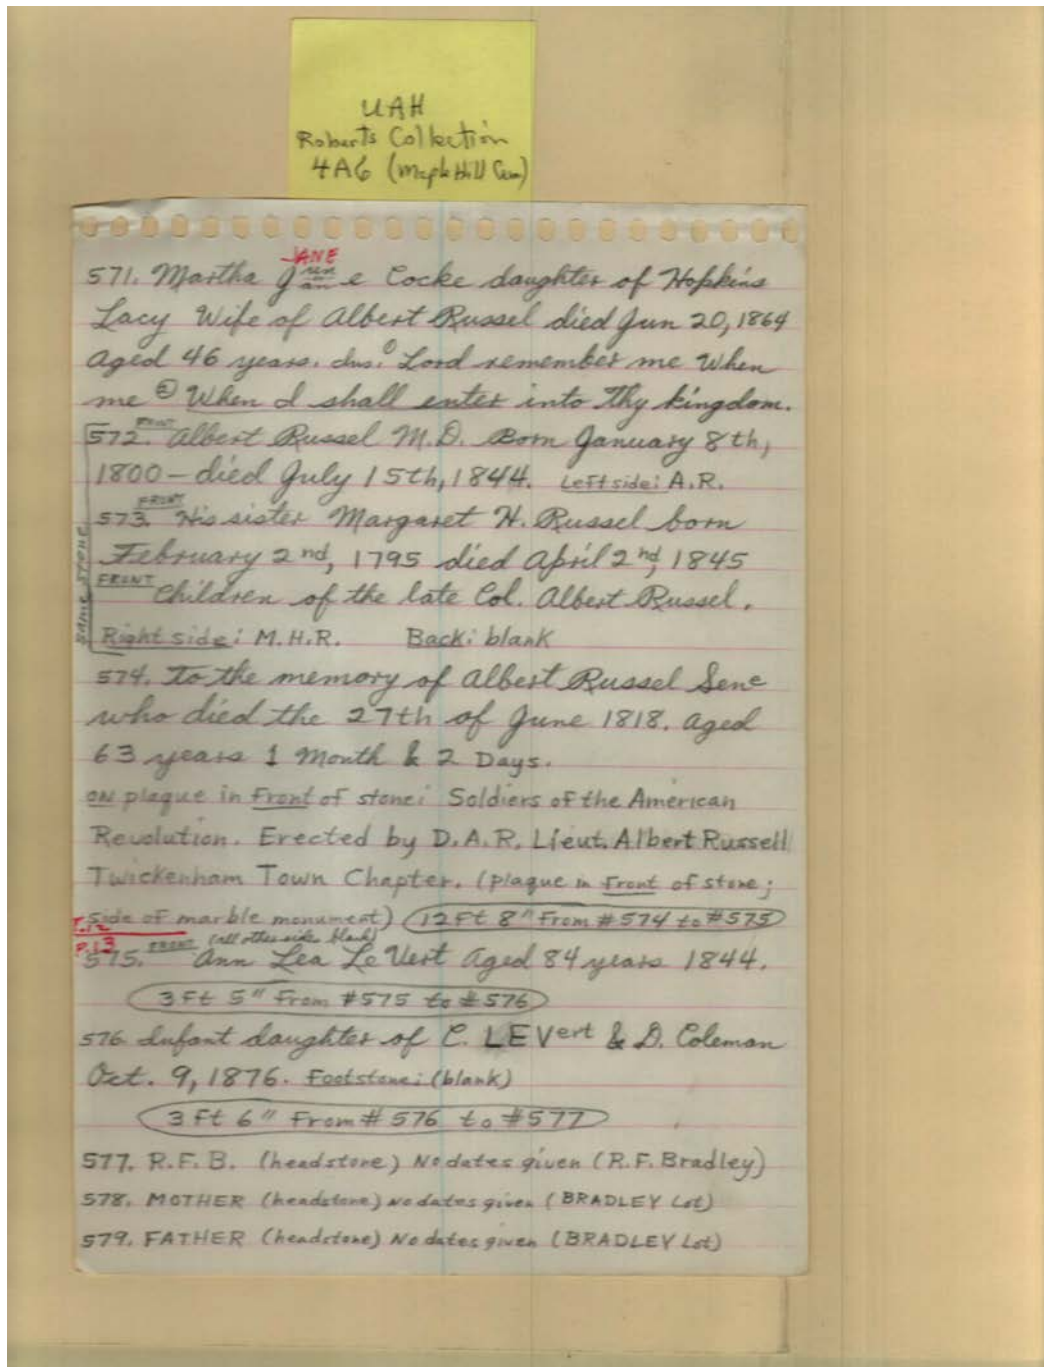 UAH
Roberts Collection
4A6 (Maple Hill Cem)
JANE
571. Martha June Cocke daughter of Hopkins
Lacy Wife of Albert Russel died Jun 20, 1864
aged 46 years. Ins: ① Lord remember me When
me ② When I shall enter into Thy kingdom.
572. FRONT Albert Russel M.D. Born January 8th,
1800 – died July 15th, 1844. Left side: A.R.
573. FRONT His sister Margaret H. Russel born
February 2nd, 1795 died April 2nd, 1845
FRONT Children of the late Col. Albert Russel.
SAME STONE
Right side: M.H.R. Back: blank
574. To the memory of Albert Russel Sene
who died the 27th of June 1818. aged
63 years 1 Month & 2 Days.
ON plaque in Front of stone: Soldiers of the American
Revolution. Erected by D.A.R. Lieut. Albert Russell
Twickenham Town Chapter. (plaque in Front of stone;
side of marble monument) 12 Ft 8" From #574 to #575
T.12
P.13
575. FRONT (all other side blank) Ann Lea Le Vert Aged 84 years 1844.
3 Ft 5" From #575 to #576
576. Infant daughter of C. LEVert & D. Coleman
Oct. 9, 1876. Footstone: (blank)
3 Ft 6" From #576 to #577
577. R.F.B. (headstone) No dates given (R.F. Bradley)
578. MOTHER (headstone) No dates given (BRADLEY Lot)
579. FATHER (headstone) No dates given (BRADLEY Lot)